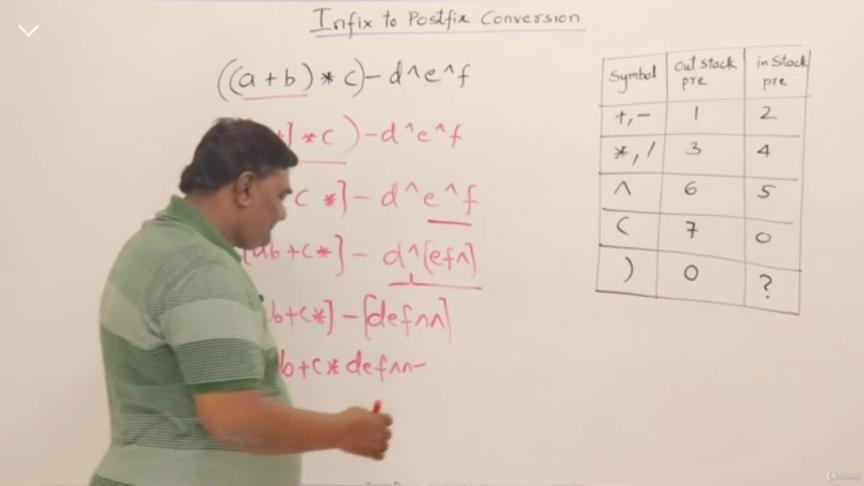 Infix to Postfix Conversion
((a + b) * c) - d ^ e ^ f
+] * c ) - d ^ e ^ f
c *] - d ^ e ^ f
ab + c *] - d ^ [ef^]
b + c *] - [def^^]
b + c * def^^-
Symbol out stack pre in stack pre
+, - 1 2
*, / 3 4
^ 6 5
( 7 0
) 0 ?